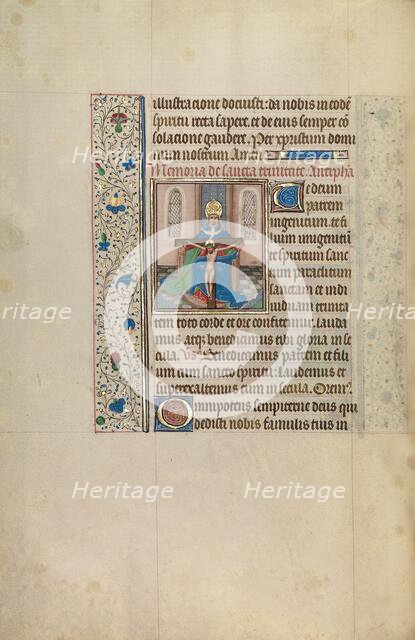 illustracione docuisti: da nobis in eodē
spiritu recta sapere, et de eius semper cō
solacione gaudere. Per xpristum domi
num nostrum Amē
Memoria de sancta trinitate. Antipha
Te deum
patrem
ingenitum. te fi
lium unigenitū
te spiritum sanc
tum paraclitum
sanctam et indi
uiduam trinita
tem toto corde et ore confitemur lauda
mus atq; benedicimus tibi gloria in se
cula. Vs. Benedicimus patrem et fili
um cum sancto spiritu. Laudemus et
superexaltemus eum in secula. Orem9
Omnipotens sempiterne deus qui
dedisti nobis famulis tuis in
Heritage
Heritage
Heritage
Heritage
Heritage
Heritage
C